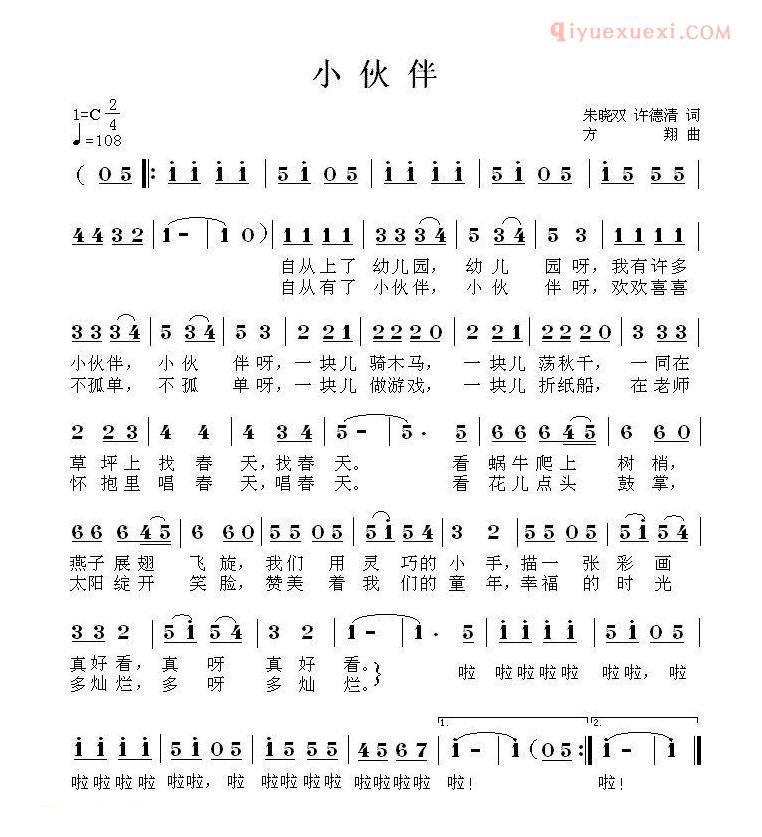 qiyuexuexi.COM
小伙伴
1=C 2/4 朱晓双 许德清 词
♩=108 方 翔 曲
( 0 5 ‖: i i i i | 5 i 0 5 | i i i i | 5 i 0 5 | i 5 5 5 |
4 4 3 2 | i - | i 0 ) | 1 1 1 1 | 3 3 3 4 | 5 3 4 | 5 3 | 1 1 1 1 |
自从上了 幼儿园， 幼 儿 园 呀，我有许多
自从有了 小伙伴， 小 伙 伴 呀，欢欢喜喜
3 3 3 4 | 5 3 4 | 5 3 | 2 2 1 | 2 2 2 0 | 2 2 1 | 2 2 2 0 | 3 3 3 |
小伙伴， 小 伙 伴 呀，一 块儿 骑木马， 一 块儿 荡秋千， 一 同在
不孤单， 不 孤 单 呀，一 块儿 做游戏， 一 块儿 折纸船， 在 老师
2 2 3 | 4 4 | 4 3 4 | 5 - | 5 · 5 | 6 6 6 4 5 | 6 6 0 |
草 坪上 找 春 天，找春 天。 看 蜗牛爬上 树 梢，
怀 抱里 唱 春 天，唱春 天。 看 花儿点头 鼓 掌，
6 6 6 4 5 | 6 6 0 | 5 5 0 5 | 5 i 5 4 | 3 2 | 5 5 0 5 | 5 4 4 |
燕子展翅 飞 旋，我们 用 灵 巧的 小 手，描一 张 彩 画
太阳绽开 笑 脸，赞美 着 我 们的 童 年，幸福 的 时 光
3 3 2 | 5 i 5 4 | 3 2 | i - | i · 5 | i i i i | 5 i 0 5 |
真好看， 真 呀 真 好 看。} 啦 啦啦啦啦 啦啦， 啦
多灿烂， 多 呀 多 灿 烂。
i i i i | 5 i 0 5 | i 5 5 5 | 4 5 6 7 | 1. i - | i ( 0 5 :‖ 2. i - | i - ‖
啦啦啦啦 啦啦， 啦 啦啦啦啦 啦啦啦啦 啦！ 啦！